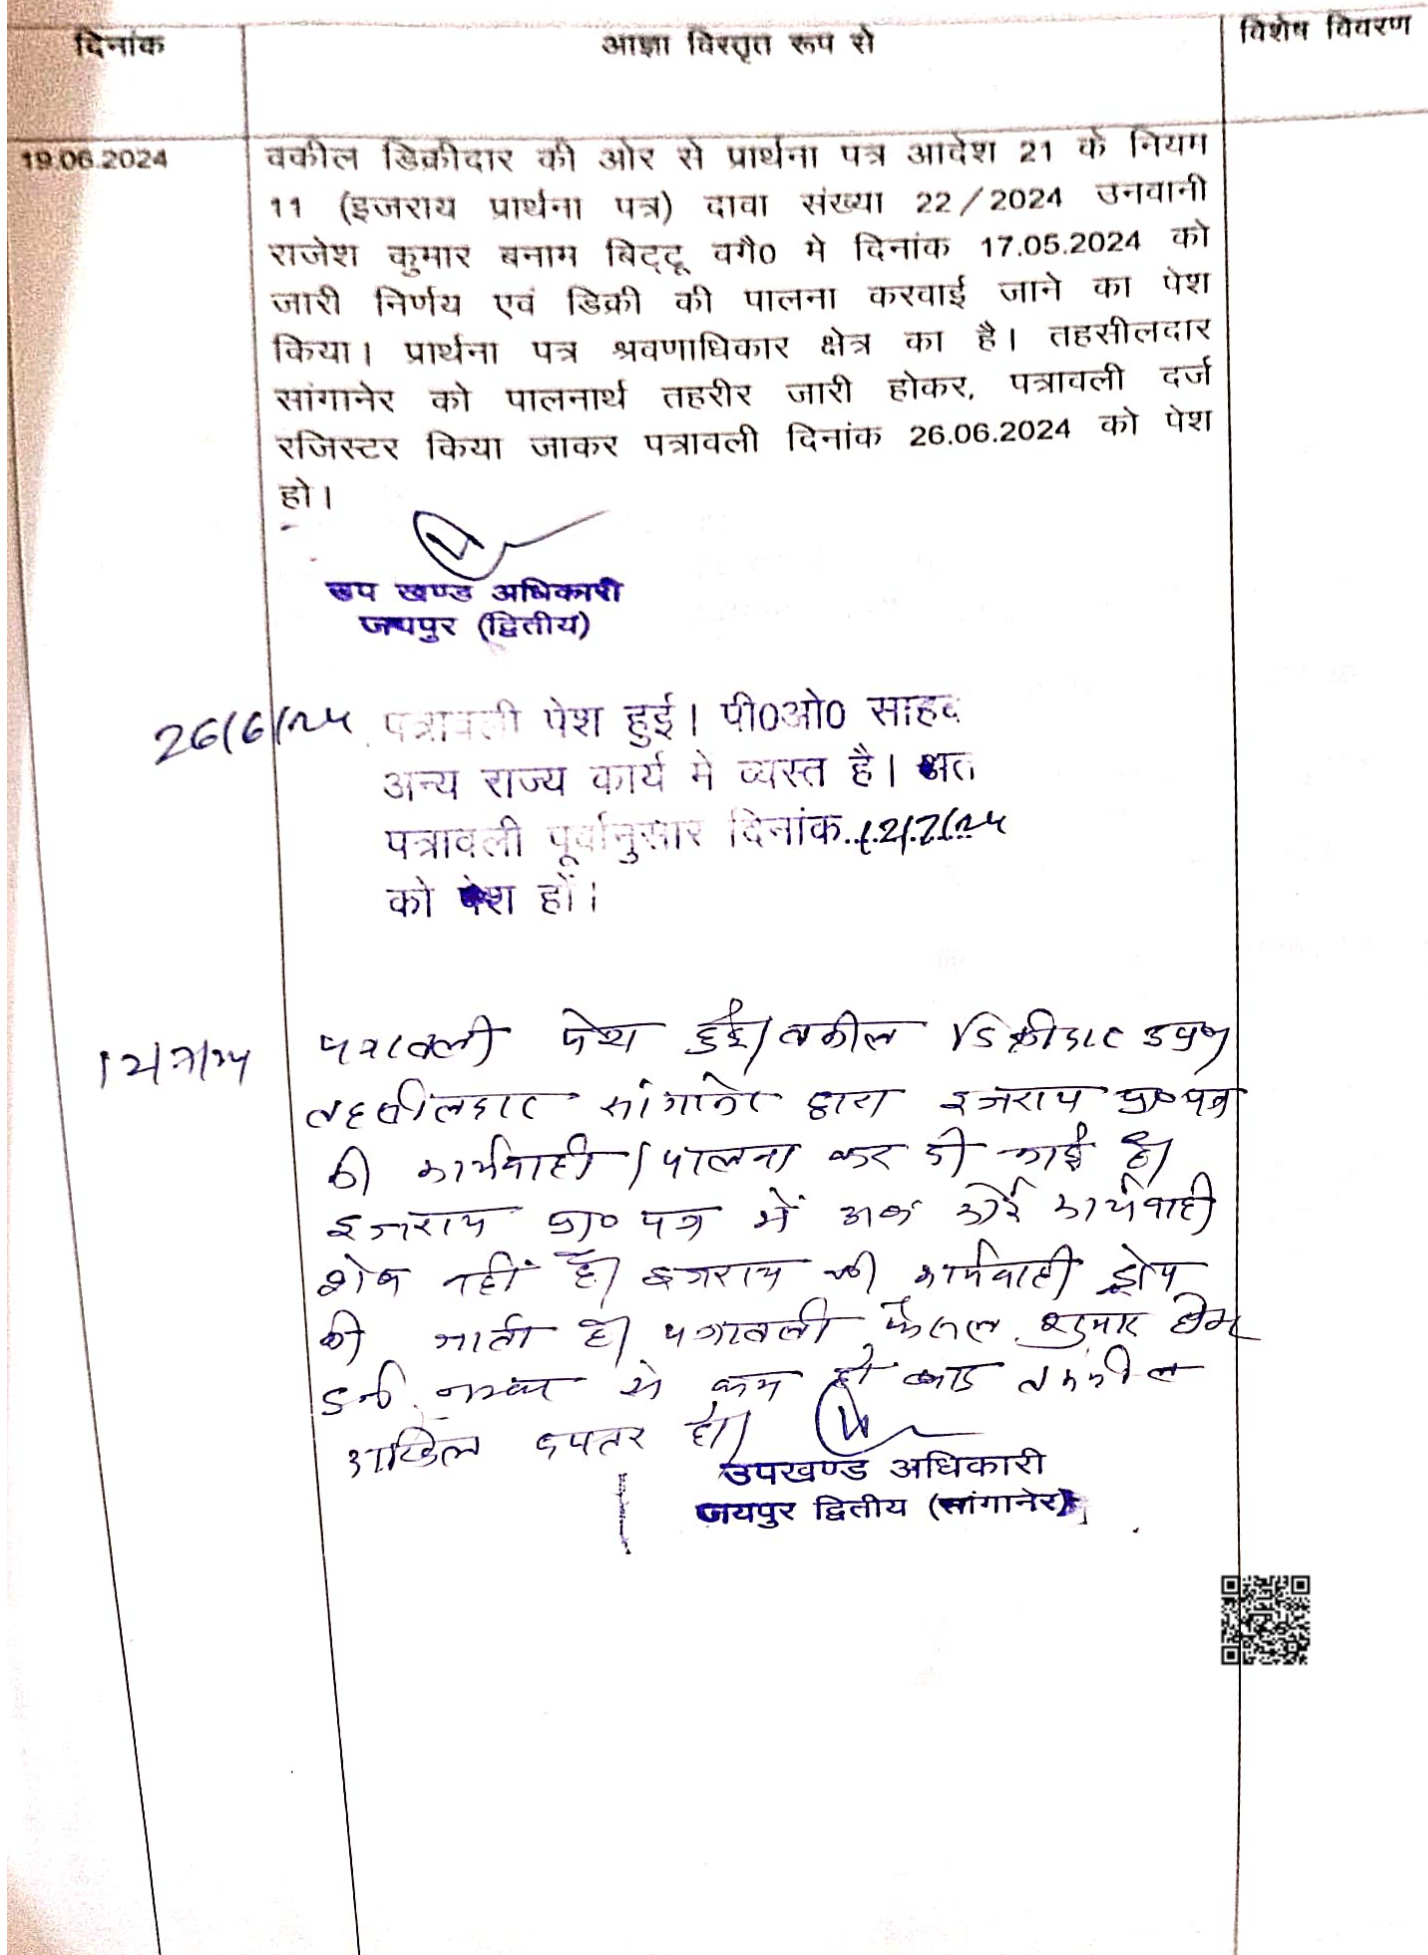 दिनांक आज्ञा विस्तृत रूप से विशेष विवरण
19.06.2024 वकील डिक्रीदार की ओर से प्रार्थना पत्र आदेश 21 के नियम
11 (इजराय प्रार्थना पत्र) दावा संख्या 22/2024 उनवानी
राजेश कुमार बनाम बिट्टू वगै0 मे दिनांक 17.05.2024 को
जारी निर्णय एवं डिक्री की पालना करवाई जाने का पेश
किया। प्रार्थना पत्र श्रवणाधिकार क्षेत्र का है। तहसीलदार
सांगानेर को पालनार्थ तहरीर जारी होकर, पत्रावली दर्ज
रजिस्टर किया जाकर पत्रावली दिनांक 26.06.2024 को पेश
हो।
उप खण्ड अधिकारी
जयपुर (द्वितीय)
26/6/24 पत्रावली पेश हुई। पी0ओ0 साहब
अन्य राज्य कार्य मे व्यस्त है। अत
पत्रावली पूर्वानुसार दिनांक 12/7/24
को पेश हों।
12/7/24 पत्रावली पेश हुई। वकील डिक्रीदार उप०
तहसीलदार सांगानेर द्वारा इजराय प्रा० पत्र
की कार्यवाही/पालना कर दी गई है।
इजराय प्रा० पत्र में अब कोई कार्यवाही
शेष नहीं है। इजराय की कार्यवाही ड्रोप
की जाती है। पत्रावली फैसल शुमार होकर
नम्बर से कम हो बाद तकमील
दाखिल दफ्तर हो।
उपखण्ड अधिकारी
जयपुर द्वितीय (सांगानेर)